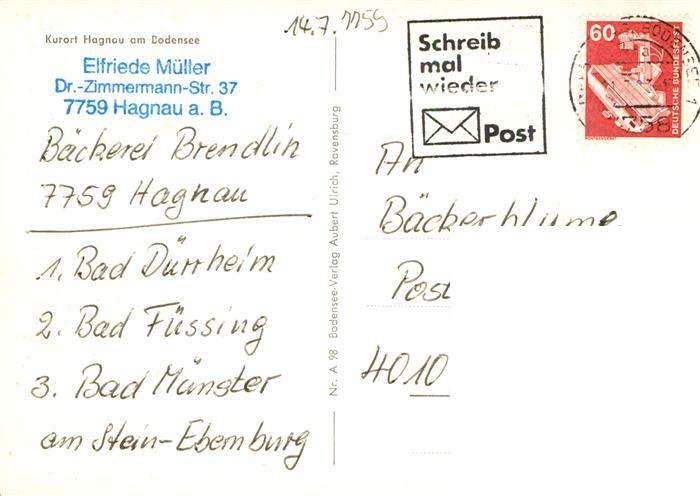 Kurort Hagnau am Bodensee
Elfriede Müller
Dr.-Zimmermann-Str. 37
7759 Hagnau a. B.
Bäckerei Brendlin
7759 Hagnau
1. Bad Dürrheim
2. Bad Füssing
3. Bad Münster
am Stein-Ebernburg
Nr. A 98 Bodensee-Verlag Aubert Ulrich, Ravensburg
14.7. 7759
Schreib
mal
wieder
Post
60
DEUTSCHE BUNDESPOST
An
Bäckerblume
Post
4010